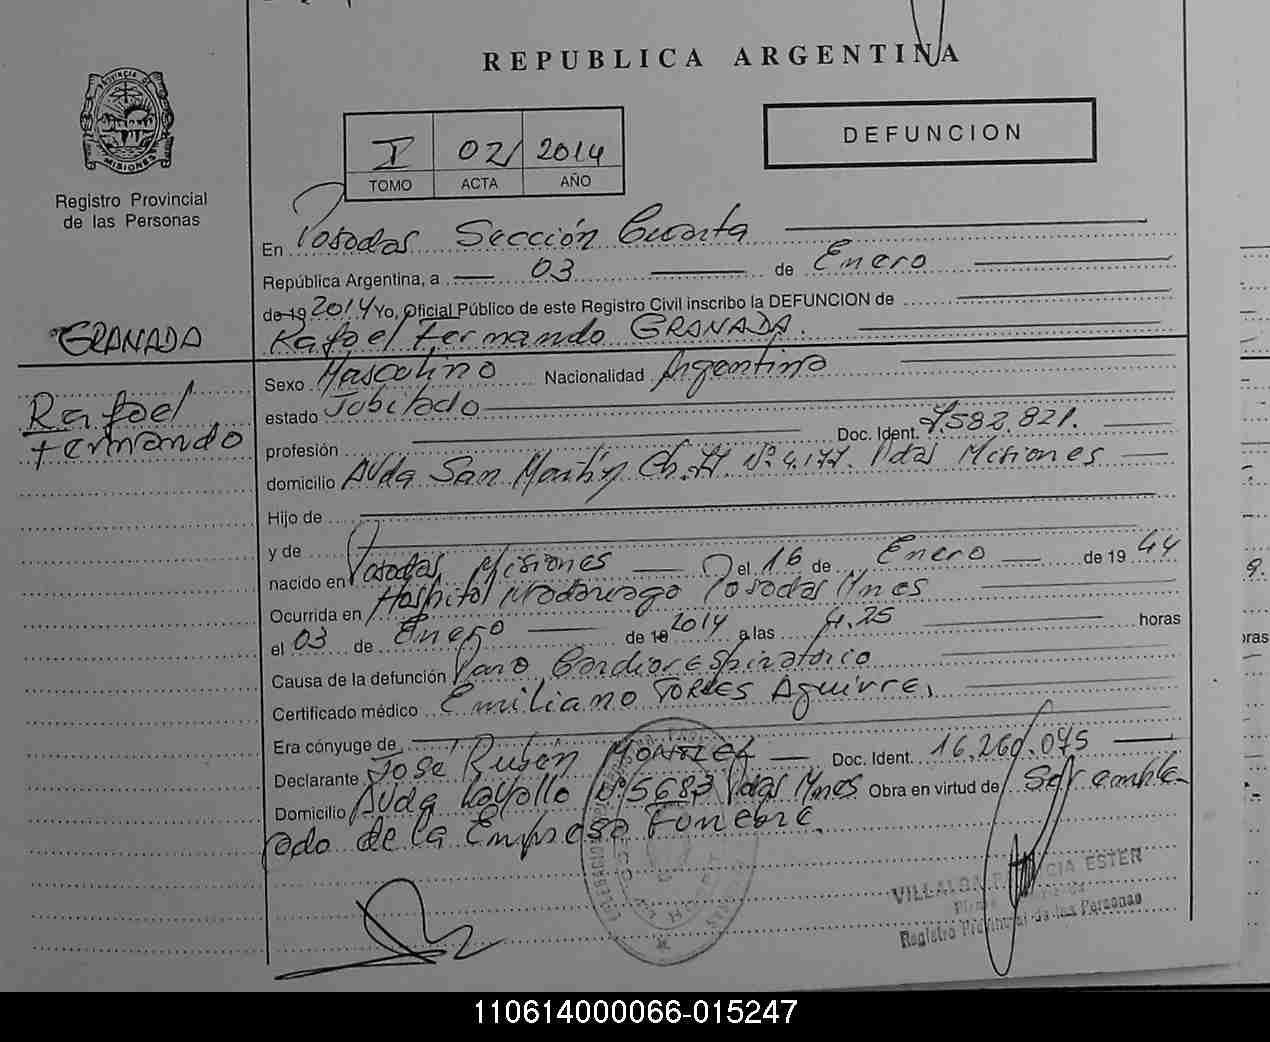 REPUBLICA ARGENTINA
PROVINCIA DE MISIONES
Registro Provincial
de las Personas
I 02 2014
TOMO ACTA AÑO
DEFUNCION
En Posadas Sección Cuarta
República Argentina, a 03 de Enero
de 19 2014 Yo, Oficial Público de este Registro Civil inscribo la DEFUNCION de
GRANADA
Rafael Fernando GRANADA.
Rafael
Fernando
Sexo Masculino Nacionalidad Argentina
estado Jubilado
profesión Doc. Ident. 7.582.821.
domicilio Avda San Martín Ch. Nº 4.177. Pdas Misiones
Hijo de
y de
nacido en Posadas Misiones el 16 de Enero de 19 44
Ocurrida en Hospital Madariaga Posadas Mnes
el 03 de Enero de 19 2014 a las 4.25 horas
Causa de la defunción Paro Cardiorespiratorio
Certificado médico Emiliano TORRES Aguirre.
Era cónyuge de
Declarante José Rubén MONTIEL Doc. Ident. 16.260.075
Domicilio Avda Nº 5683 Pdas Mnes Obra en virtud de Ser emplea
ado de la Empresa Funebre.
VILLALBA PATRICIA ESTER
Registro Provincial de las Personas
110614000066-015247